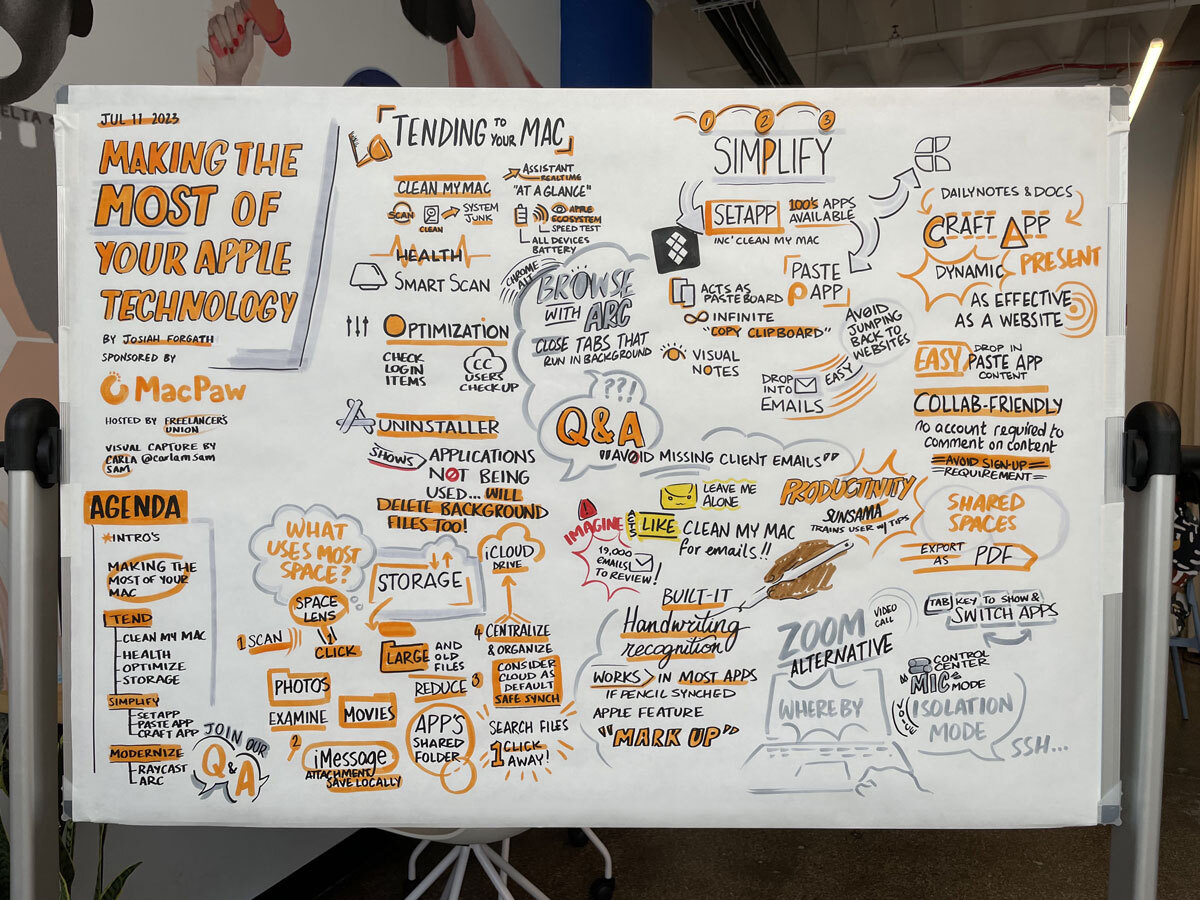 JUL 11 2023
MAKING THE
MOST OF
YOUR APPLE
TECHNOLOGY
BY JOSIAH FORGATH
SPONSORED BY
MacPaw
HOSTED BY FREELANCER'S
UNION
VISUAL CAPTURE BY
CARLA @carlamsam
SAM
AGENDA
*INTRO'S
MAKING THE
MOST OF YOUR
MAC
TEND
CLEAN MY MAC
HEALTH
OPTIMIZE
STORAGE
SIMPLIFY
SETAPP
PASTE APP
CRAFT APP
MODERNIZE
RAYCAST
ARC
JOIN OUR
Q&A
TENDING TO
YOUR MAC
CLEAN MY MAC
ASSISTANT
REALTIME
"AT A GLANCE"
SCAN
CLEAN
SYSTEM
JUNK
APPLE
ECOSYSTEM
SPEED TEST
ALL DEVICES
BATTERY
HEALTH
SMART SCAN
OPTIMIZATION
CHECK
LOGIN
ITEMS
CC
USERS
CHECK UP
UNINSTALLER
SHOWS
APPLICATIONS
NOT BEING
USED... WILL
DELETE BACKGROUND
FILES TOO!
CHROME
ALT
BROWSE
WITH ARC
CLOSE TABS THAT
RUN IN BACKGROUND
??!
Q&A
WHAT
USES MOST
SPACE?
STORAGE
iCLOUD
DRIVE
SPACE
LENS
1 SCAN
1
CLICK
PHOTOS
EXAMINE
MOVIES
2
iMessage
ATTACHMENT
SAVE LOCALLY
LARGE AND
OLD
FILES
REDUCE 3
APP'S
SHARED
FOLDER
4 CENTRALIZE
& ORGANIZE
CONSIDER
CLOUD AS
DEFAULT
SAFE SYNCH
SEARCH FILES
1 CLICK
AWAY!
1 2 3
SIMPLIFY
SETAPP
100'S APPS
AVAILABLE
INC' CLEAN MY MAC
PASTE
APP
ACTS AS
PASTEBOARD
INFINITE
"COPY CLIPBOARD"
VISUAL
NOTES
AVOID
JUMPING
BACK TO
WEBSITES
DROP
INTO
EMAILS
EASY
DAILY NOTES & DOCS
CRAFT APP
DYNAMIC
PRESENT
AS EFFECTIVE
AS A WEBSITE
EASY DROP IN
PASTE APP
CONTENT
COLLAB-FRIENDLY
no account required to
comment on content
AVOID SIGN-UP
REQUIREMENT
SHARED
SPACES
EXPORT
AS PDF
"AVOID MISSING CLIENT EMAILS"
LEAVE ME
ALONE
IMAGINE
19,000
EMAILS
TO REVIEW!
ACTS
LIKE CLEAN MY MAC
for emails!!
PRODUCTIVITY
SUNSAMA
TRAINS USER w/ TIPS
BUILT-IT
Handwriting
recognition
WORKS IN MOST APPS
IF PENCIL SYNCHED
APPLE FEATURE
"MARK UP"
ZOOM
ALTERNATIVE
VIDEO
CALL
WHEREBY
TAB KEY TO SHOW &
SWITCH APPS
CONTROL
CENTER
"MIC" MODE
VOICE
ISOLATION
MODE
SSH...